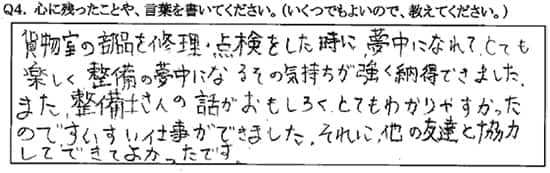 Q4. 心に残ったことや、言葉を書いてください。（いくつでもよいので、教えてください。）
貨物室の部品を修理・点検をした時に、夢中になれて、とても
楽しく、整備の夢中になるその気持ちが強く納得できました。
また、整備士さんの話がおもしろく、とてもわかりやすかった
のですいすい仕事ができました。それに、他の友達と協力
してできてよかったです。